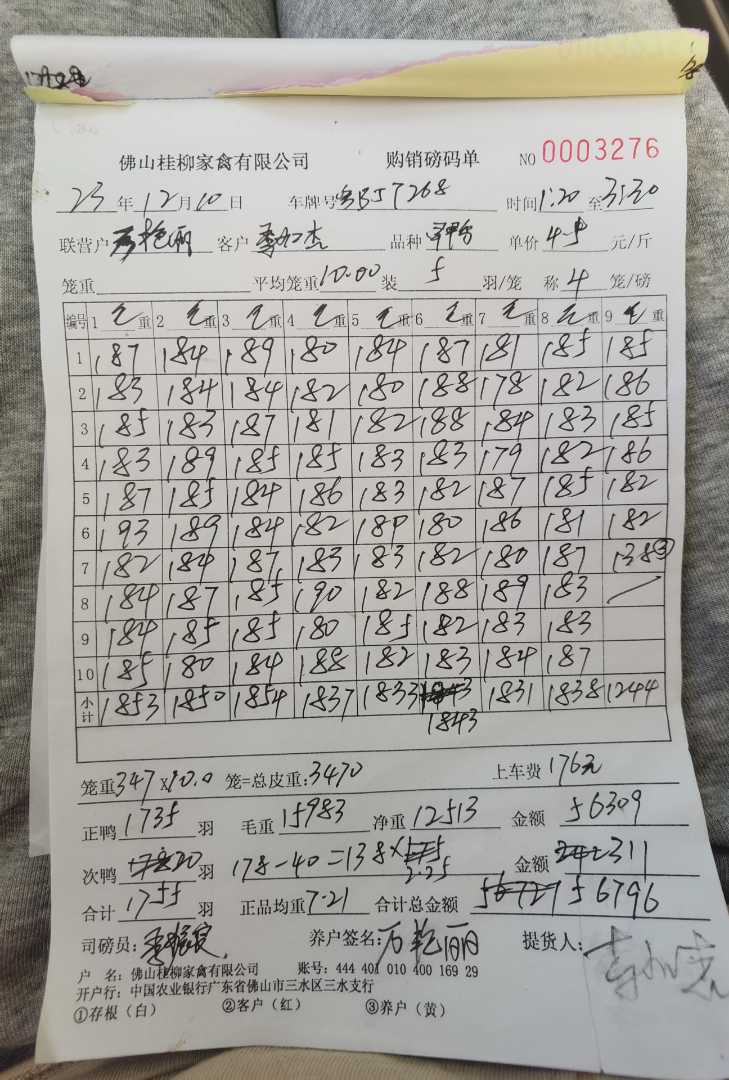 0003276
佛山桂柳家禽有限公司 购销磅码单 NO 0003276
23年12月10日 车牌号 粤BJ7268 时间1:20至3:30
联营户 客户 李 杰 品种 单价 4.5 元/斤
笼重 平均笼重10.00 装 5 羽/笼 称 4 笼/磅
编号 1 毛重 2 毛重 3 毛重 4 毛重 5 毛重 6 毛重 7 毛重 8 毛重 9 毛重
1 187 184 189 180 184 187 181 185 185
2 183 184 184 182 180 188 178 182 186
3 185 183 187 181 182 188 184 183 185
4 183 189 185 185 183 183 179 182 186
5 187 185 184 186 183 182 187 185 182
6 193 189 184 182 189 180 186 181 182
7 182 184 187 183 183 182 180 187 138③
8 184 187 185 190 182 188 189 183
9 184 185 185 180 185 182 183 183
10 185 180 184 188 182 183 184 187
小计 1853 1850 1854 1837 1833 1843 1831 1838 1244
1843
笼重347×10.0 笼=总皮重:3470 上车费 176元
正鸭 1735 羽 毛重 15983 净重 12513 金额 56309
次鸭 20 羽 178-40=138× 2.25 金额 311
合计 1755 羽 正品均重7.21 合计总金额 56796
司磅员: 养户签名: 万艳丽 提货人:
户 名: 佛山桂柳家禽有限公司 账号: 444 401 010 400 169 29
开户行: 中国农业银行广东省佛山市三水区三水支行
①存根(白) ②客户(红) ③养户(黄)